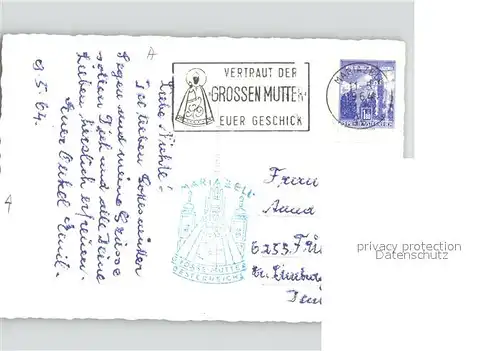 A
VERTRAUT DER
"GROSSEN MUTTER"
EUER GESCHICK
MARIAZELL
Liebe Nichte!
Der lieben Gottesmutter
Segen und meine Grüsse
sollen Dich und alle Deine
Lieben herzlich erfreuen.
Euer Onkel Emil.
8.5.64.
MARIAZELL
GROSSE MUTTER
OESTERREICHS
Frau
Anna
6255
Kr. Limburg
privacy protection
Datenschutz
A